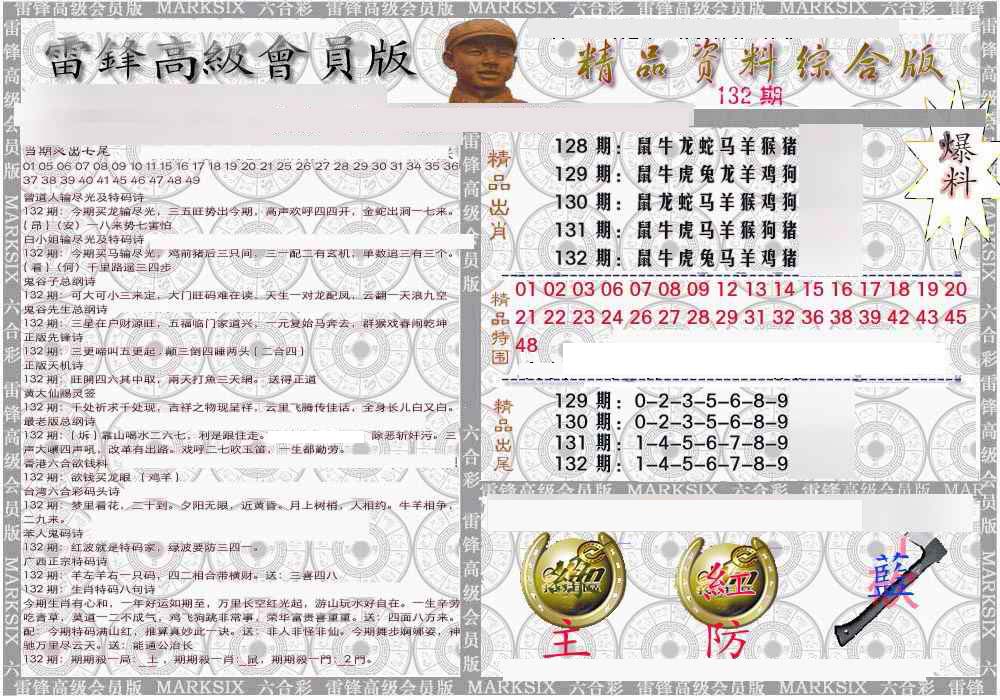 雷锋高级会员版 MARKSIX 六合彩 雷锋高级会员版 MARKSIX 六合彩 雷锋高级会员版 MARKSIX 六合彩
雷鋒高級會員版
精品资料综合版
132 期
当期火出七尾
01 05 06 07 08 09 10 11 15 16 17 18 19 20 21 25 26 27 28 29 30 31 34 35 36
37 38 39 40 41 45 46 47 48 49
曾道人输尽光及特码诗
132 期：今期买龙输尽光，三五旺势出今期，高声欢呼四四开，金蛇出洞一七来。
{ 昂 }（安）一八来势七害怕
白小姐输尽光及特码诗
132 期：今期买马输尽光，鸡前猪后三只间，三一配二有玄机，单数追三有三个。
{ 看 }（何）千里路遥三四步
鬼谷子总纲诗
132 期：可大可小三来定，大门旺码难在读，天生一对龙配凤，云翻一天浪九空
鬼谷先生总纲诗
132 期：三星在户财源旺，五福临门家道兴，一元复始马奔去，群猴戏春闹乾坤
正版先锋诗
132 期：三更啼叫五更起，颠三倒四睡两头 { 二合四 }
正版天机诗
132 期：旺開四六其中取，兩天打魚三天網。送得正道
黄大仙赐灵签
132 期：千处祈求千处现，吉祥之物现呈祥，云里飞腾传佳话，全身长儿白又白。
最老版总纲诗
132 期：{ 坼 } 靠山喝水二六七，利是跟住走。 除恶斩奸污。三
声大嚷四声吼，改革有出路。戏呼二七吹玉笛，一生都勤劳。
香港六合欲钱料
132 期：欲钱买龙眼 { 鸡羊 }
台湾六合彩码头诗
132 期：梦里看花，二十到。夕阳无限，近黄昏。月上树梢，人相约。牛羊相争，
二九来。
苯人鬼码诗
132 期：红波就是特码家，绿波要防三四一。
广西正宗特码诗
132 期：羊左羊右一只码，四二相合带横财。送：三喜四八
132 期：生肖特码八句诗
今期生肖有心和，一年好运如期至，万里长空红光起，游山玩水好自在。一生辛劳
吃青草，莫道一二不成气，鸡飞狗跳非常事，荣华富贵喜重重。送：四面八方来。
配：今期特码满山红，推算真妙此一诀。送：非人非怪非仙。今期舞步婀娜姿，神
驰万里尽云天。送：能通公治长
132 期：期期殺一局：土，期期殺一肖：鼠，期期殺一門：2 門。
精品出肖
128 期：鼠牛龙蛇马羊猴猪
129 期：鼠牛虎兔龙羊鸡狗
130 期：鼠龙蛇马羊猴鸡狗
131 期：鼠牛虎马羊猴狗猪
132 期：鼠牛虎兔马羊鸡猪
爆料
精品特围
01 02 03 06 07 08 09 12 13 14 15 16 17 18 19 20
21 22 23 24 26 27 28 29 31 32 36 38 39 42 43 45
48
精品出尾
129 期：0-2-3-5-6-8-9
130 期：0-2-3-5-6-8-9
131 期：1-4-5-6-7-8-9
132 期：1-4-5-6-7-8-9
主
紅
防
藍
雷锋高级会员版 MARKSIX 六合彩 雷锋高级会员版 MARKSIX 六合彩 雷锋高级会员版 MARKSIX 六合彩 雷锋